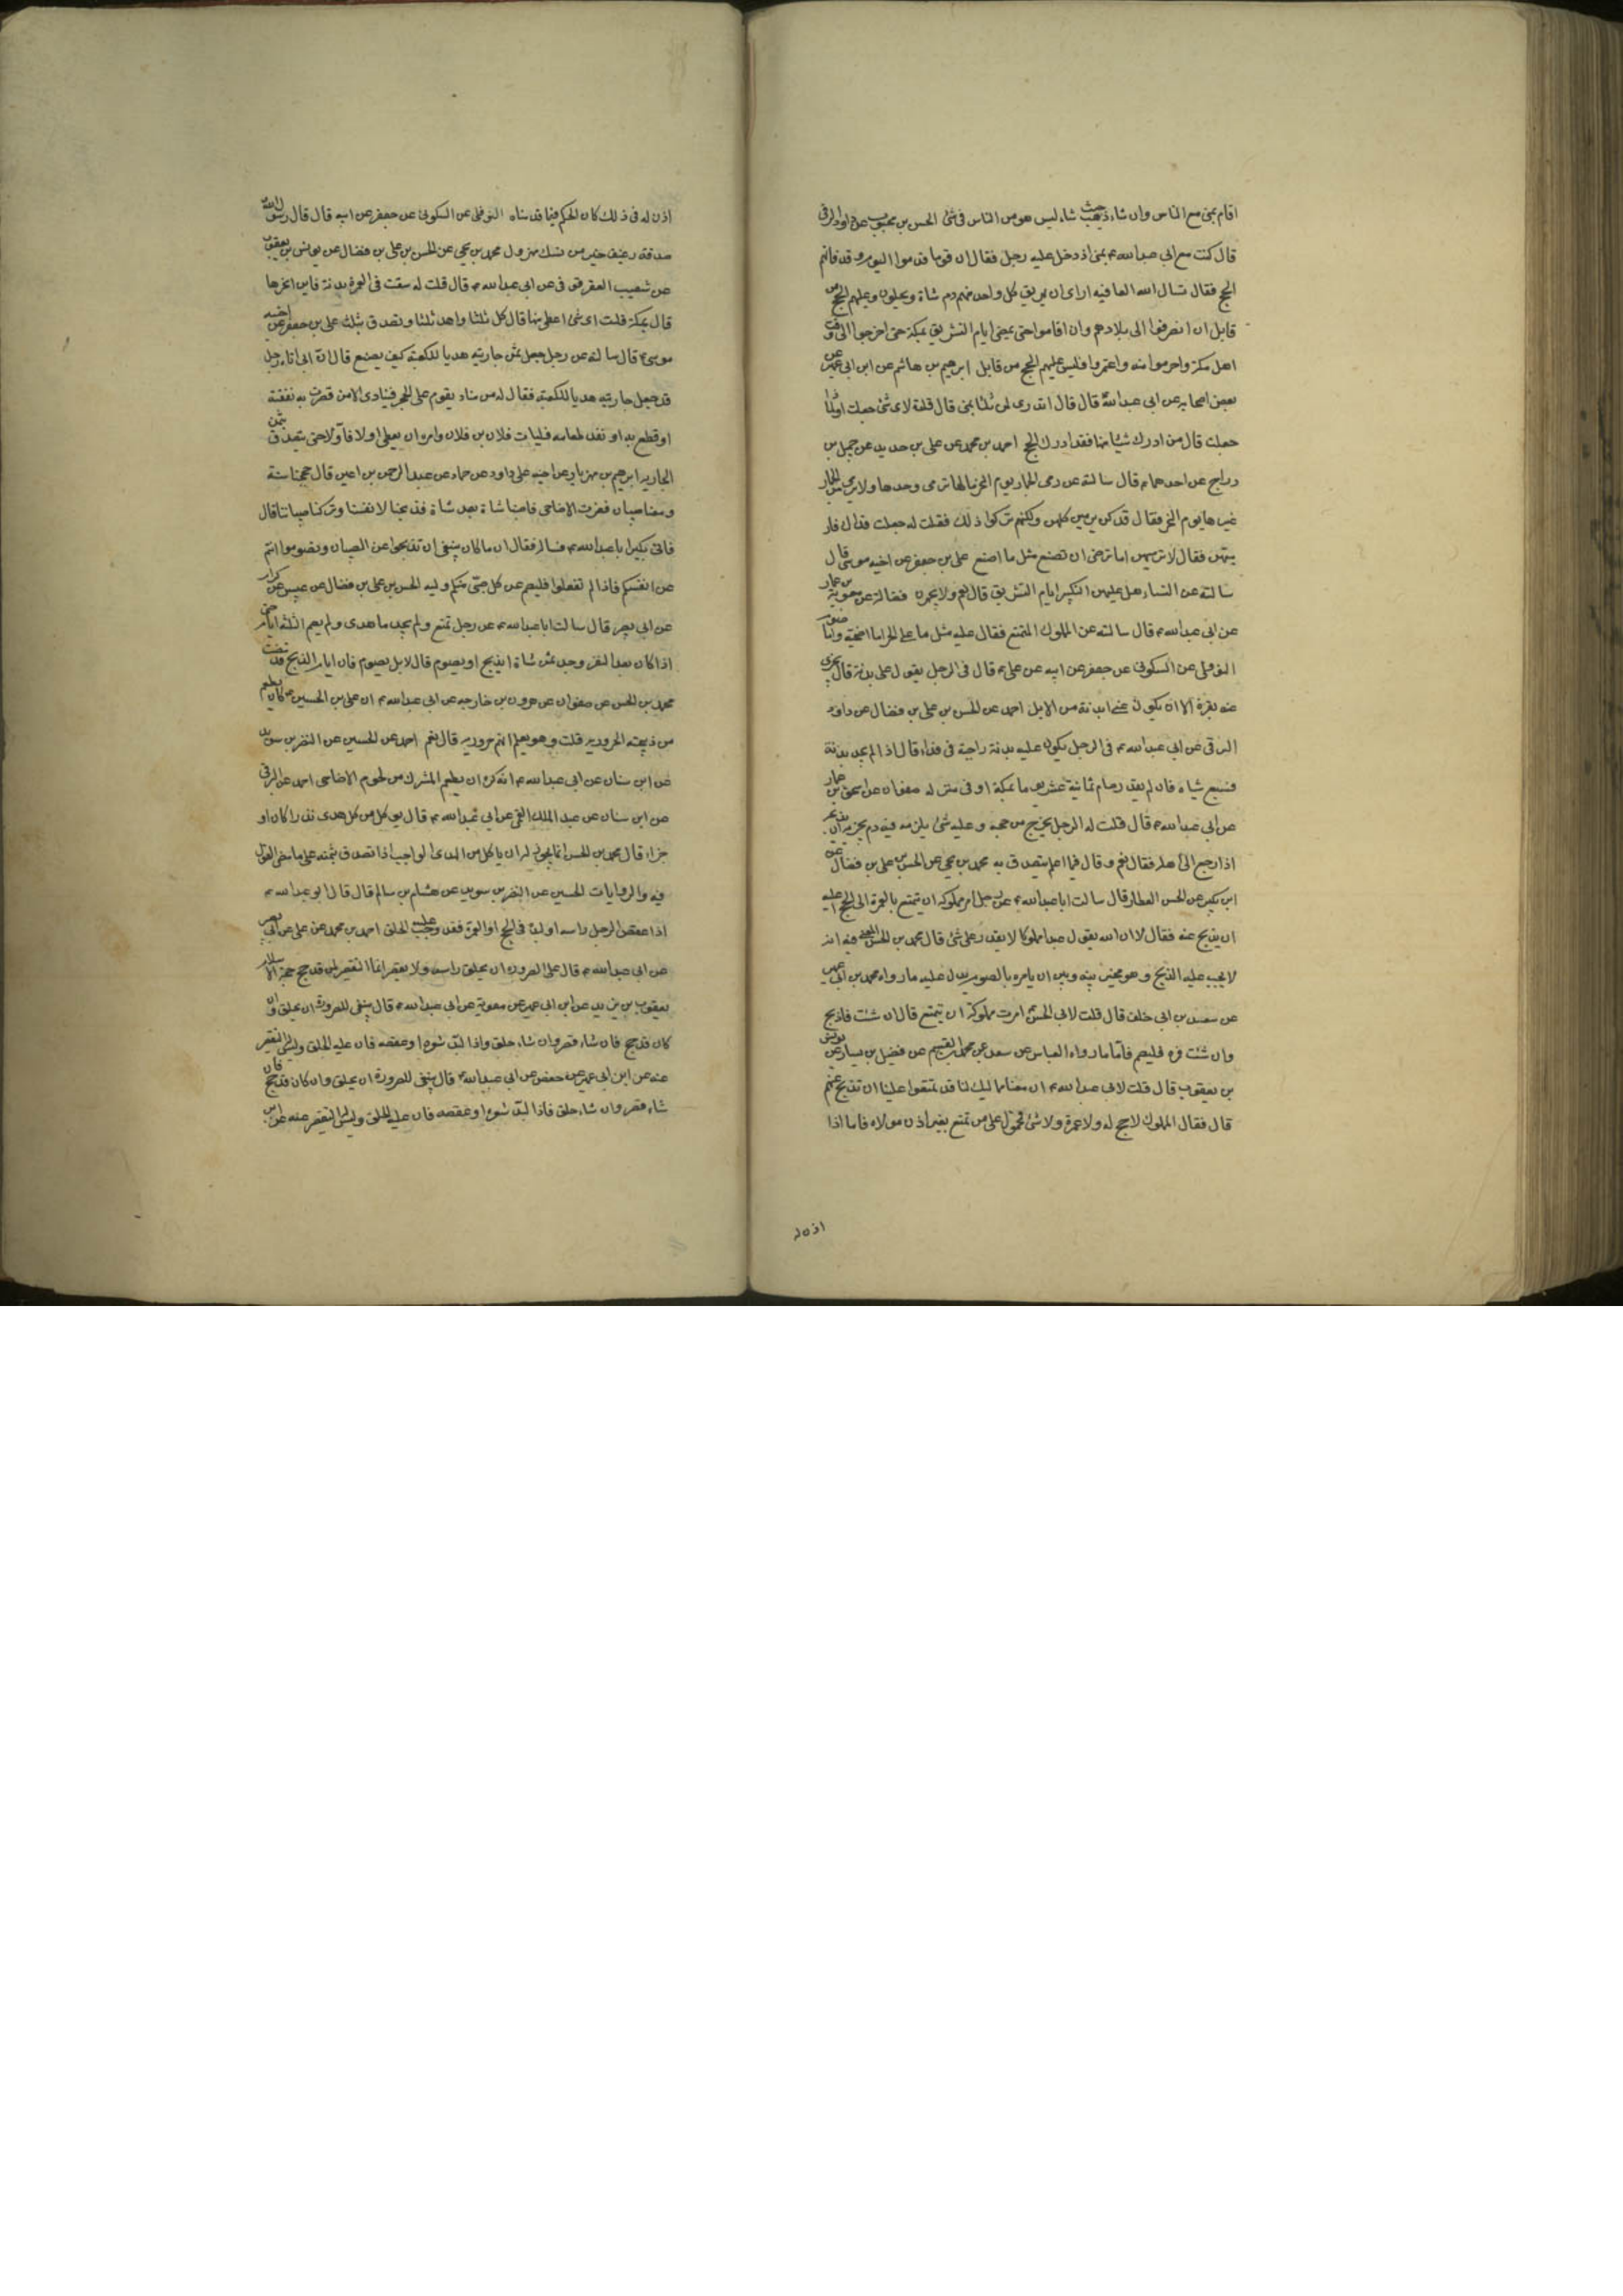 اقام بمنى مع الناس وان شاء ذهب حيث شاء ليس هو من الناس فى شئ الحسن بن محبوب عن داود الرقى
قال كنت مع ابى عبد الله ع بمنى اذ دخل عليه رجل فقال ان قوما قدموا اليوم وقد فاتهم
الحج فقال نسال الله العافيه ارى ان يهريق كل واحد منهم دم شاة ويحلون وعليهم الحج من
قابل ان انصرفوا الى بلادهم وان اقاموا حتى يمضى ايام التشريق بمكة حتى اخرجوا الى وقت
اهل مكة واحرموا منه واعتمروا فليس عليهم الحج من قابل ابرهيم بن هاشم عن ابن ابى عمير عن
بعض اصحابه عن ابى عبد الله قال قال اتدرى لم جعل ثلثا بمنى قال قلت لاى شئ جعلت
جعلت قال من ادرك شيئا منها فقد ادرك الحج احمد بن محمد عن على بن حديد عن جميل بن
دراج عن احدهما ع قال سالته عن رمى الجمار يوم النحر مالها ترمى وحدها ولا يرمى من الجمار
غيرها يوم النحر فقال قد كن يرمين كلهن ولكنهم تركوا ذلك فقلت له جعلت فداك فار
ميهن فقال لا ترمهن اما ترضى ان تصنع مثل ما اصنع على بن جعفر عن اخيه موسى قال
سالته عن النساء هل عليهن التكبير ايام التشريق قال نعم ولا يجهرن فضالة عن معوية بن عمار
عن ابى عبد الله ع قال سالته عن المملوك المتمتع فقال عليه مثل ما على الحر اما اضحية واما صوم
النوفلى عن السكونى عن جعفر عن ابيه عن على ع قال فى الرجل يقول على بدنة قال يجزى
عنه بقرة الا ان يكون عنى بدنة من الابل احمد عن الحسن بن على بن فضال عن داود
الرقى عن ابى عبد الله ع فى الرجل يكون عليه بدنة واجبة فى فداء قال اذا لم يجد بدنة
فسبع شياه فان لم يقدر صام ثمانية عشر يوما بمكة او فى منزله صفوان عن اسحق بن عمار
عن ابى عبد الله ع قال قلت له الرجل يخرج من حجه وعليه شئ يلزمه فيه دم يجزيه ان يذبحه
اذا رجع الى اهله فقال نعم وقال فيما اعلم يتصدق به محمد بن يحيى عن الحسن بن على بن فضال عن
ابن بكير عن الحسن العطار قال سالت ابا عبد الله ع عن رجل امر مملوكه ان يتمتع بالعمرة الى الحج اعليه
ان يذبح عنه فقال لا ان الله يقول عبدا مملوكا لا يقدر على شئ قال محمد بن الحسن المعنى فيه انه
لا يجب عليه الذبح وهو مخير بينه وبين ان يامره بالصوم يدل عليه ما رواه محمد بن ابى عمير
عن سعد بن ابى خلف قال قلت لابى الحسن امرت مملوكى ان يتمتع قال ان شئت فاذبح
وان شئت فره فليصم فاما ما رواه العباس عن سعد عن محمد بن القسيم عن فضيل بن يسار عن يونس
بن يعقوب قال قلت لابى عبد الله ع ان معنا مماليك لنا قد تمتعوا علينا ان نذبح عنهم
قال فقال المملوك لا حج له ولا عمرة ولا شئ فمحمول على من تمتع بغير اذن مولاه فاما اذا
اذن له
اذن له فى ذلك كان الحكم فيما قدمناه النوفلى عن السكونى عن جعفر عن ابيه قال قال رسول الله
صدقة رغيف خير من نسك مهزول محمد بن يحيى عن الحسن بن على بن فضال عن يونس بن يعقوب
عن شعيب العقرقوفى عن ابى عبد الله ع قال قلت له سقت فى العمرة بدنة فاين انحرها
قال بمكة قلت اى شئ اعطى منها قال كل ثلثا واهد ثلثا وتصدق بثلث على بن جعفر عن اخيه
موسى ع قال سالته عن رجل جعل ثمن جاريته هديا للكعبة كيف يصنع قال ان ابى اتاه رجل
قد جعل جاريته هديا للكعبة فقال له مر مناديا يقوم على الحجر فينادى الا من قصرت به نفقته
او قطع به او نفد طعامه فليات فلان بن فلان وامره ان يعطى اولا فاولا حتى يتصدق بثمن
الجارية ابرهيم بن مهزيار عن اخيه على داود عن حماد عن عبد الرحمن بن اعين قال حججنا سنة
ومعنا صبيان فعزت الاضاحى فاصبنا شاة بعد شاة فذبحنا لانفسنا وتركنا صبياننا قال
فاتى بكير ابا عبد الله ع فساله فقال انما كان ينبغى ان تذبحوا عن الصبيان وتصوموا انتم
عن انفسكم فاذا لم تفعلوا فليصم عن كل صبى منكم وليه الحسن بن على بن فضال عن عبيس عن كرام
عن ابى بصير قال سالت ابا عبد الله ع عن رجل تمتع ولم يجد ما هدى ولم يصم الثلثة ايام حتى
اذا كان بعد النفر وجد ثمن شاة ايذبح او يصوم قال لا بل يصوم فان ايام الذبح قد مضت
محمد بن الحسن عن صفوان عن هرون بن خارجه عن ابى عبد الله ع ان على بن الحسين كان يطعم
من ذبيحته الحروريه قلت وهو يعلم انهم حروريه قال نعم احمد عن الحسين عن النضر بن سويد
عن ابن سنان عن ابى عبد الله ع انه كره ان يطعم المشرك من لحوم الاضاحى احمد عن البرقى
عن ابن سنان عن عبد الملك القمى عن ابى عبد الله ع قال يؤكل من كل هدى نذرا كان او
جزاء قال محمد بن الحسن انما يجوز له ان ياكل من الهدى الواجب اذا تصدق بثمنه على ما مضى القول
فيه والروايات الحسين عن النضر بن سويد عن هشام بن سالم قال قال ابو عبد الله ع
اذا عقص الرجل راسه او لبده فى الحج او العمرة فقد وجب عليه الحلق احمد بن محمد عن على عن ابى بصير
عن ابى عبد الله ع قال على الصرورة ان يحلق راسه ولا يقصر انما التقصير لمن قد حج حجة الاسلام
يعقوب بن يزيد عن ابن ابى عمير عن معوية عن ابى عبد الله ع قال ينبغى للصرورة ان يحلق وان
كان قد حج فان شاء قصر وان شاء حلق واذا لبد شعره او عقصه فان عليه الحلق وليس له التقصير
عنه عن ابن ابى عمير عن حفص عن ابى عبد الله ع قال ينبغى للصرورة ان يحلق وان كان قد حج فان
شاء قصر وان شاء حلق فاذا لبد شعره او عقصه فان عليه الحلق وليس له التقصير عنه عن